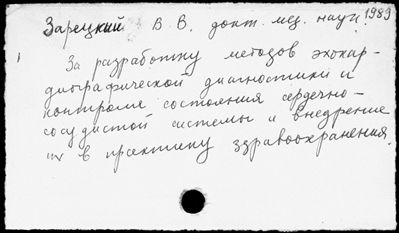 Зарецкий В. В. докт. мед. наук. 1989
За разработку методов эхокар-
диографической диагностики и
контроля состояния сердечно-
сосудистой системы и внедрение
их в практику здравоохранения.